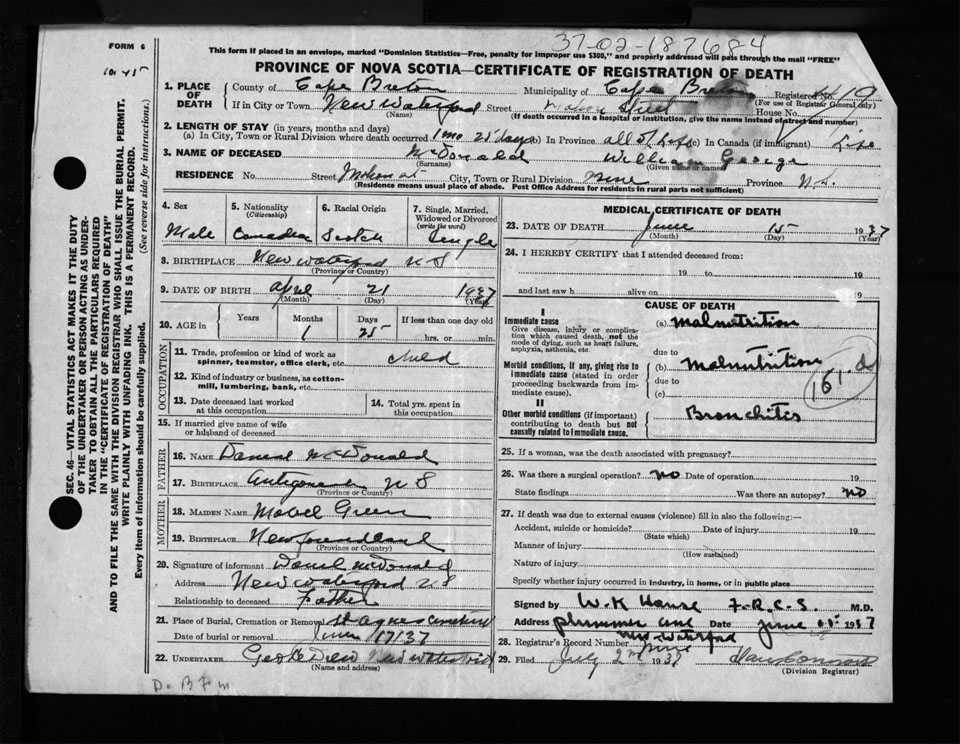 FORM 6
37-02-187684
This form if placed in an envelope, marked "Dominion Statistics—Free, penalty for improper use $300," and properly addressed will pass through the mail "FREE"
PROVINCE OF NOVA SCOTIA—CERTIFICATE OF REGISTRATION OF DEATH
SEC. 46—VITAL STATISTICS ACT MAKES IT THE DUTY
OF THE UNDERTAKER OR PERSON ACTING AS UNDER-
TAKER TO OBTAIN ALL THE PARTICULARS REQUIRED
IN THE "CERTIFICATE OF REGISTRATION OF DEATH"
AND TO FILE THE SAME WITH THE DIVISION REGISTRAR WHO SHALL ISSUE THE BURIAL PERMIT.
WRITE PLAINLY WITH UNFADING INK. THIS IS A PERMANENT RECORD.
Every item of information should be carefully supplied. (See reverse side for instructions.)
1. PLACE OF DEATH
County of Cape Breton Municipality of Cape Breton Registered No. 19
(For use of Registrar General only)
If in City or Town New Waterford Street House No.
(Name) (If death occurred in a hospital or institution, give the name instead of street and number)
2. LENGTH OF STAY (in years, months and days)
(a) In City, Town or Rural Division where death occurred 1 mo 25 days (b) In Province all of Life (c) In Canada (if immigrant) Life
3. NAME OF DECEASED McDonald William George
(Surname) (Given name or names)
RESIDENCE No. Street City, Town or Rural Division Province N.S.
(Residence means usual place of abode. Post Office Address for residents in rural parts not sufficient)
4. Sex 5. Nationality (Citizenship) 6. Racial Origin 7. Single, Married, Widowed or Divorced (write the word)
Male Canadian Scotch Single
8. BIRTHPLACE New Waterford N S
(Province or Country)
9. DATE OF BIRTH April 21 1937
(Month) (Day) (Year)
10. AGE in Years Months Days If less than one day old
1 25 hrs. or min.
OCCUPATION
11. Trade, profession or kind of work as spinner, teamster, office clerk, etc. child
12. Kind of industry or business, as cotton-mill, lumbering, bank, etc.
13. Date deceased last worked at this occupation
14. Total yrs. spent in this occupation
15. If married give name of wife or husband of deceased
FATHER
16. NAME Daniel McDonald
17. BIRTHPLACE Antigonish N S
(Province or Country)
MOTHER
18. MAIDEN NAME Mabel Green
19. BIRTHPLACE Newfoundland
(Province or Country)
20. Signature of informant Daniel McDonald
Address New Waterford N S
Relationship to deceased Father
21. Place of Burial, Cremation or Removal St Agnes Cemetery
Date of burial or removal June 17/37
22. UNDERTAKER New Waterford
(Name and address)
MEDICAL CERTIFICATE OF DEATH
23. DATE OF DEATH June 15 1937
(Month) (Day) (Year)
24. I HEREBY CERTIFY that I attended deceased from:
19 to 19
and last saw h alive on 19
CAUSE OF DEATH
I
Immediate cause (a) Malnutrition
Give disease, injury or complication which caused death, not the mode of dying, such as heart failure, asphyxia, asthenia, etc.
due to
Morbid conditions, if any, giving rise to immediate cause (stated in order proceeding backwards from immediate cause).
(b) Malnutrition
due to
(c)
161.d
II
Other morbid conditions (if important) contributing to death but not causally related to immediate cause.
Bronchitis
25. If a woman, was the death associated with pregnancy?
26. Was there a surgical operation? no Date of operation 19
State findings Was there an autopsy? no
27. If death was due to external causes (violence) fill in also the following:—
Accident, suicide or homicide? Date of injury 19
(State which)
Manner of injury
(How sustained)
Nature of injury
Specify whether injury occurred in industry, in home, or in public place
Signed by F.R.C.S. M.D.
Address Plummer Ave Date June 1937
New Waterford
28. Registrar's Record Number
29. Filed July 2nd 1937
(Division Registrar)